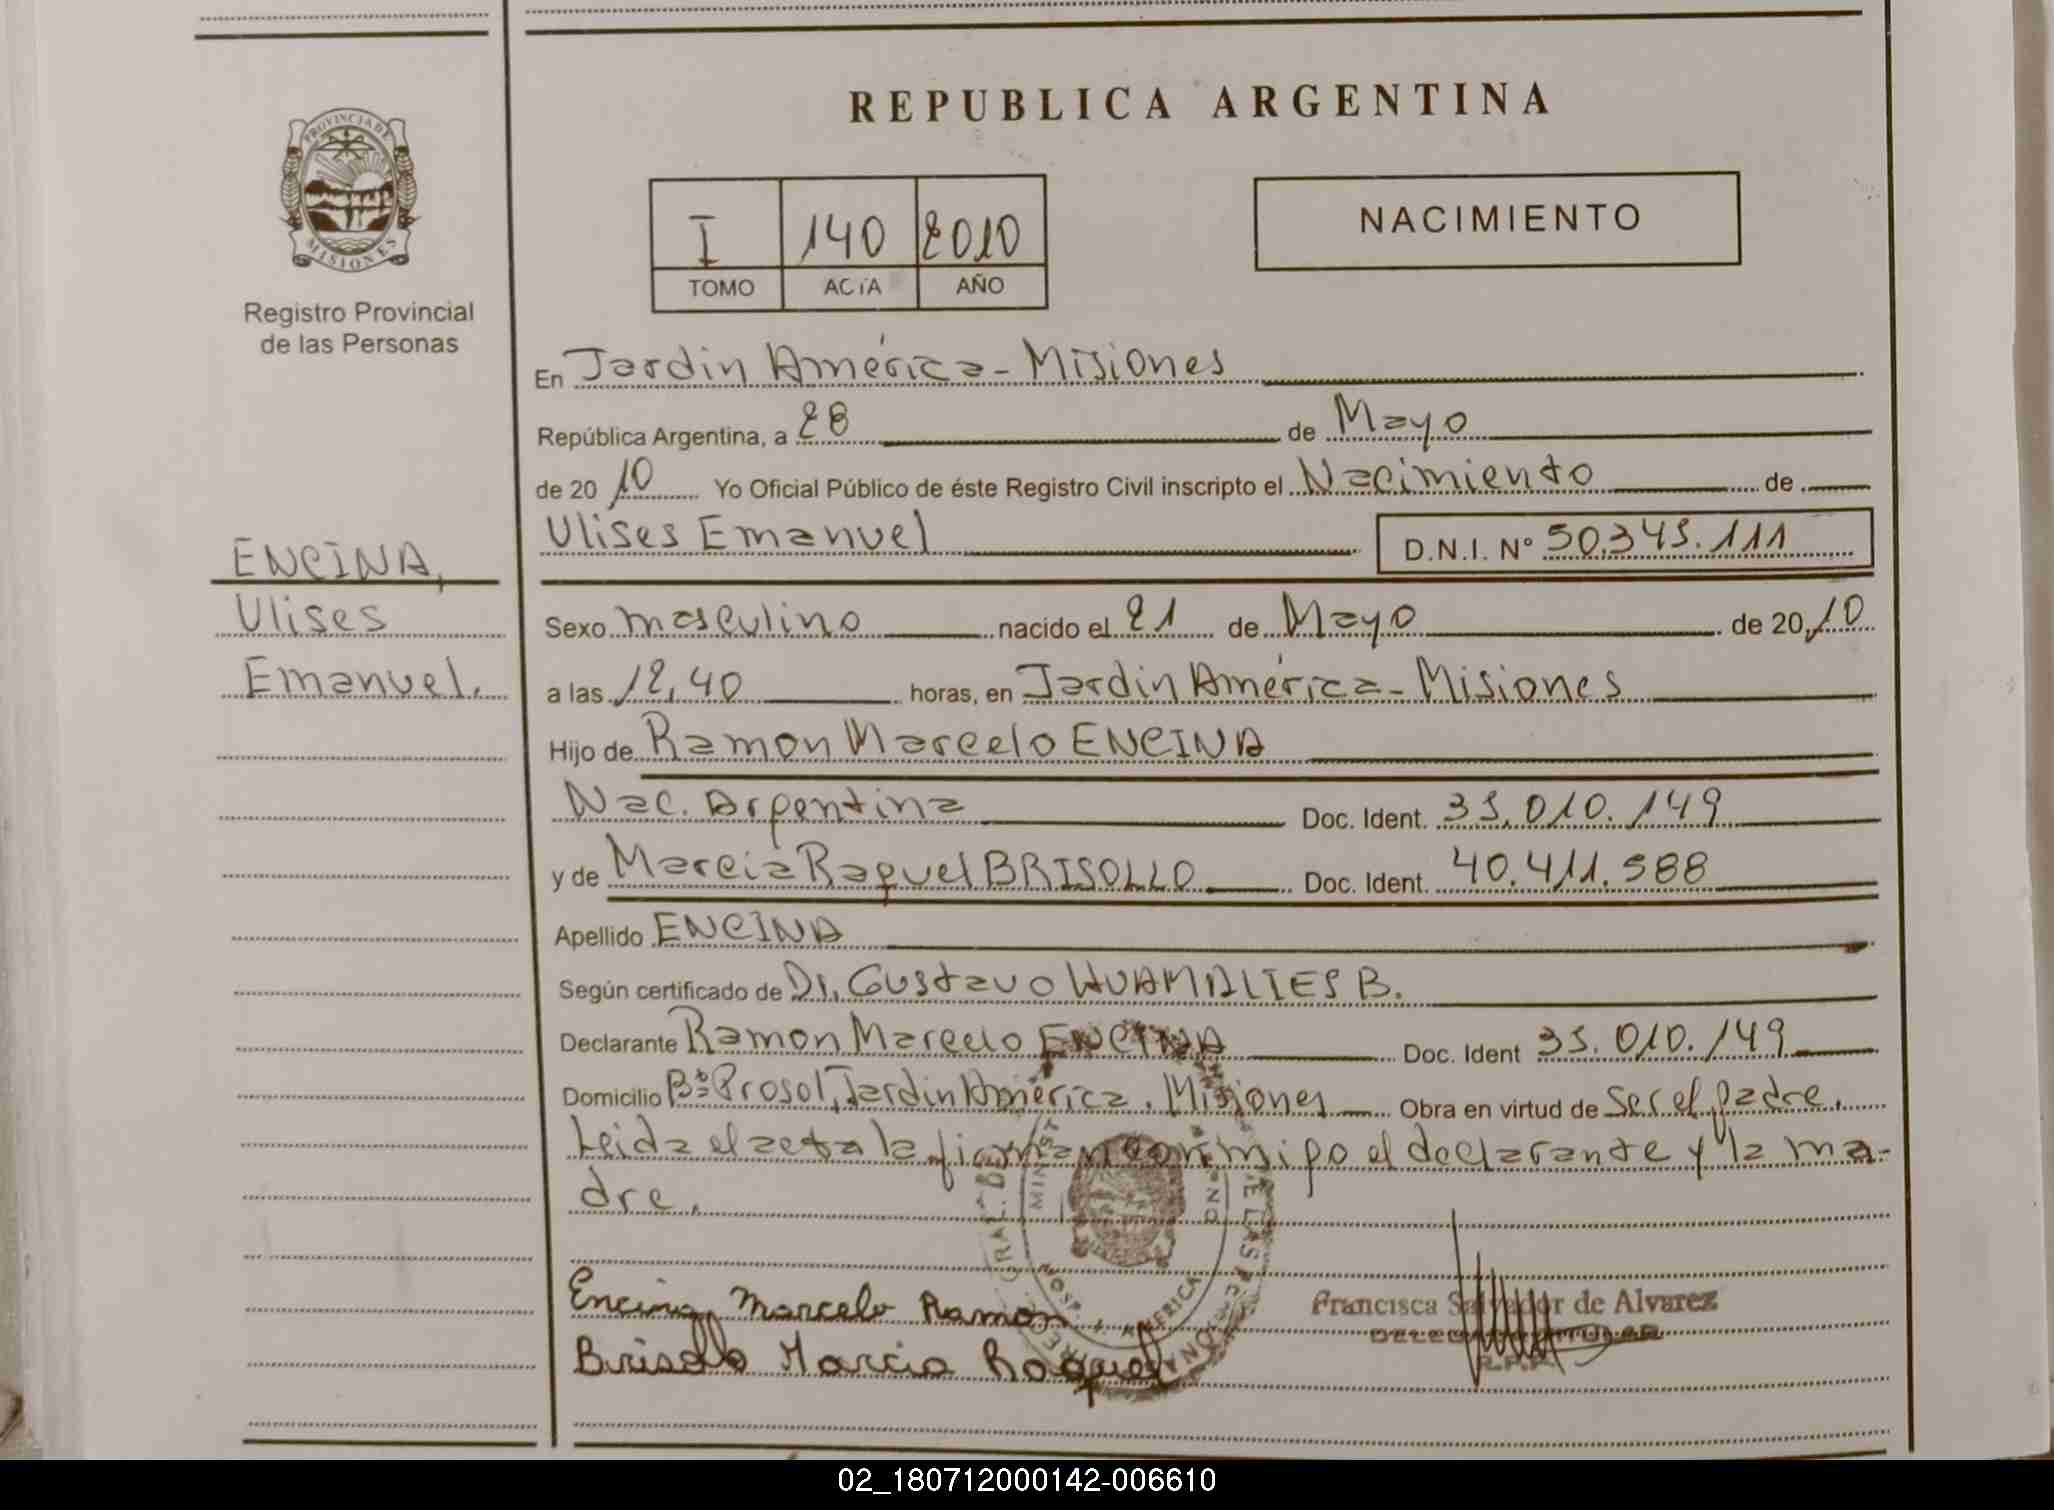 REPUBLICA ARGENTINA
PROVINCIA DE
MISIONES
Registro Provincial
de las Personas
I 140 2010
TOMO ACTA AÑO
NACIMIENTO
En Jardin América - Misiones
República Argentina, a 28 de Mayo
de 20 10 Yo Oficial Público de éste Registro Civil inscripto el Nacimiento de
Ulises Emanuel D.N.I. Nº 50.345.111
ENCINA,
Ulises
Emanuel.
Sexo masculino nacido el 21 de Mayo de 20 10
a las 12,40 horas, en Jardin América - Misiones
Hijo de Ramon Marcelo ENCINA
Nac. Argentina Doc. Ident. 35.010.149
y de Marcia Raquel BRISOLLO Doc. Ident. 40.411.588
Apellido ENCINA
Según certificado de Dr. Gustavo HUAMALIES B.
Declarante Ramon Marcelo ENCINA Doc. Ident 35.010.149
Domicilio Bº Prosol, Jardin América. Misiones Obra en virtud de ser el padre.
Leida el acta la firman conmigo el declarante y la ma-
dre.
Encina Marcelo Ramon
Brisollo Marcia Raquel
Francisca Salvador de Alvarez
DELEGADO TITULAR
R.P.P.
02_180712000142-006610